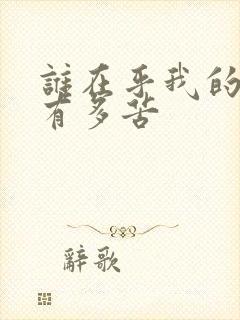 誰在乎我的
有多苦
辭歌